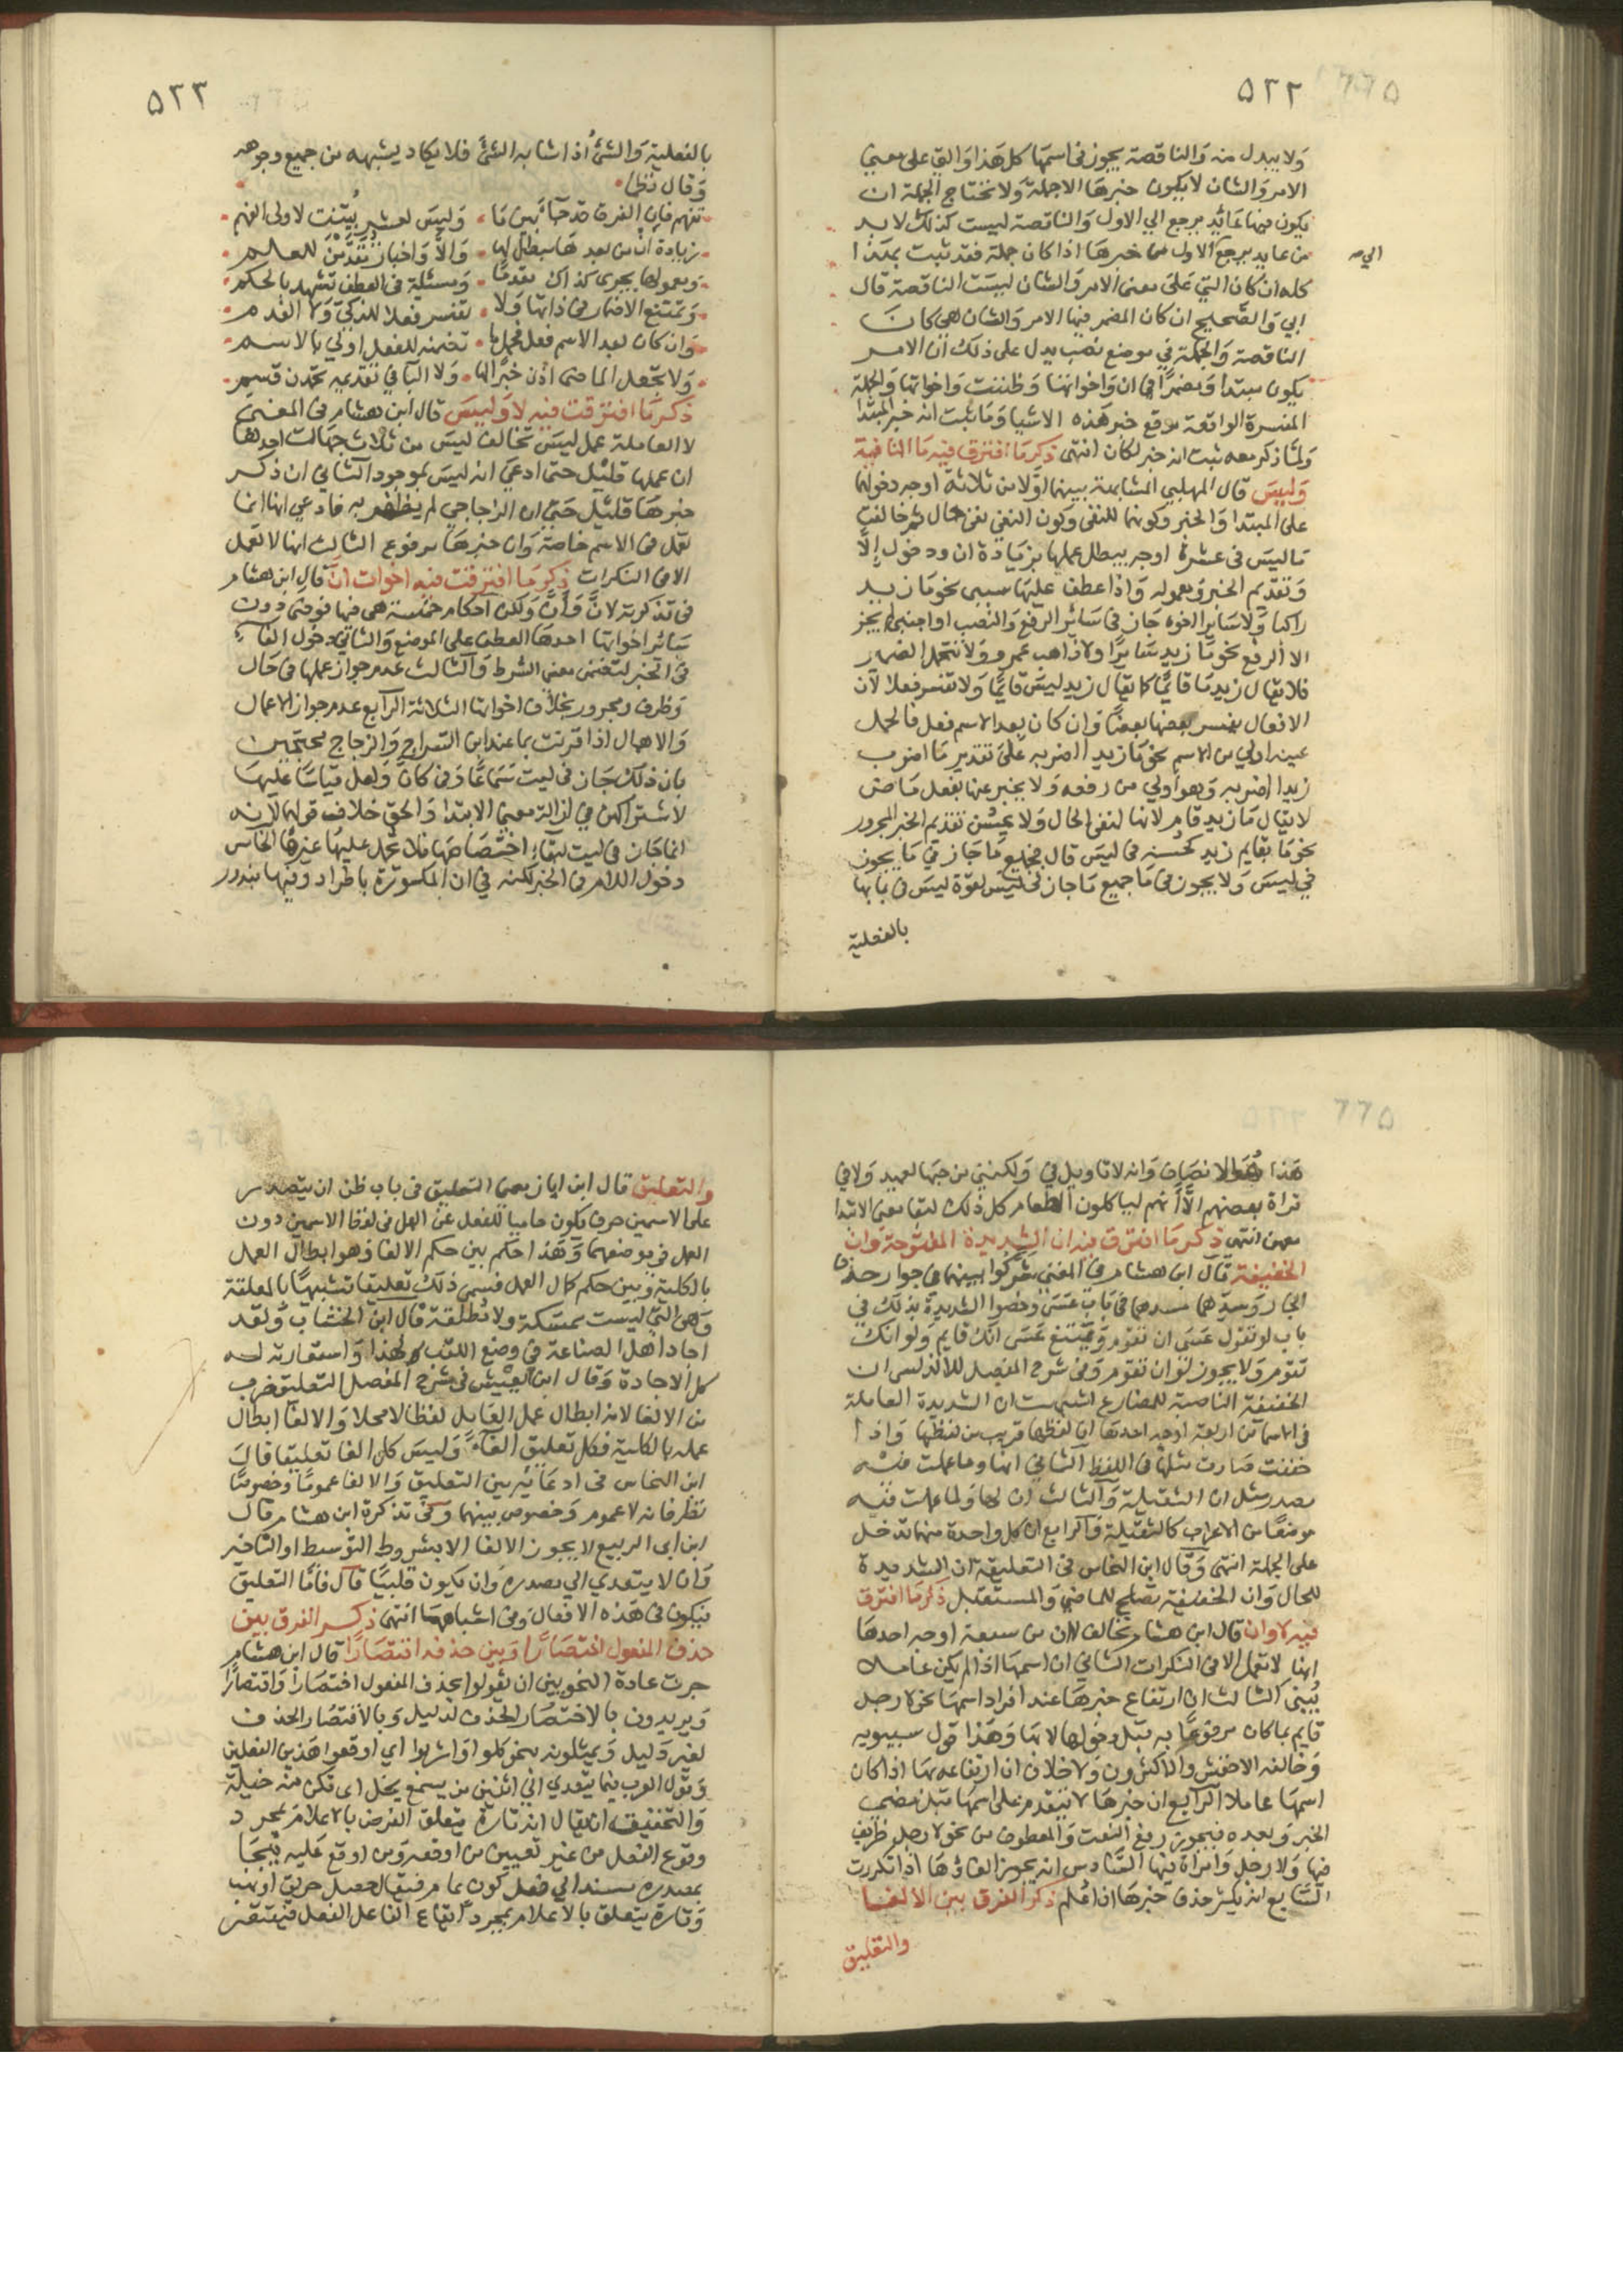 ٥٢٢
ولا يبدل منه والناقصة يجوز في اسمها كل هذا والتي على معنى
الامر والشان لا يكون خبرها الا جملة ولا تحتاج الجملة ان
يكون فيها عائد يرجع الي الاول والناقصة ليست كذلك لا بد
من عايد يرجع الاول من خبرها اذا كان جملة فقد ثبت بهذا
الي صح
كله ان كان التي على معنى الامر والشان ليست الناقصة قال
ابي والصحيح ان كان المضمر فيها الامر والشان هي كان
الناقصة والجملة في موضع نصب يدل على ذلك ان الامر
يكون مبتدا ومضمرا في ان واخواتها وظننت واخواتها والجملة
المفسرة الواقعة موقع خبر هذه الاشيا وما ثبت انه خبر المبتدا
ولما ذكر معه ثبت انه خبر لكان انتهى ذكر ما افترق فيه ما النافية
وليس قال المهلبي المشابهة بينهما اولا من ثلاثة اوجه دخولهما
على المبتدا والخبر وكونهما للنفي وكون النفي نفي حال ثم خالفت
ما ليس في عشرة اوجه يبطل عملها بزيادة ان ودخول إلا
وتقديم الخبر ومعموله واذا عطف عليها سببي نحو ما زيد
راكبا ولا سايرا اخوه جاز في سائر الرفع والنصب او اجنبي لم يجز
الا الرفع نحو ما زيد سايرا ولا ذاهب عمرو ولا تتحمل الضمير
فلا يقال زيد ما قائما كما يقال زيد ليس قايما ولا تفسر فعلا لان
الافعال يفسر بعضها بعضا وان كان بعد الاسم فعل فالحمل
عينه اولي من الاسم نحو ما زيدا اضربه على تقدير ما اضرب
زيدا اضربه وهو اولي من رفعه ولا يخبر عنها بفعل ماض
لا يقال ما زيد قام لانها لنفي الحال ولا يحسن تقديم الخبر المجرور
نحو ما بقايم زيد كحسنه في ليس قال فجميع ما جاز في ما يجوز
في ليس ولا يجوز في ما جميع ما جاز في ليس لقوة ليس في بابها
بالفعلية
٥٢٣
بالفعلية والشئ اذا شابه الشئ فلا يكاد يشبهه من جميع وجوهه
وقال نظما
تفهم فان الفرق قد جا بين ما وليس لعشر بينت لاولى الفهم
زيادة ان من بعدها مبطل لها والا واخبار تقدمن للعلم
ومعمولها يجري كذاك مقدما ومسئلة في العطف تشهد بالحكم
وتمتنع الاضمار في ذاتها ولا تفسر فعلا للذكي ولا الفدم
وان كان بعد الاسم فعل فحملها تضمنه للفعل اولي بالاسم
ولا تجعل الماضى اذن خبرا لها ولا البا في تقديمه تحدن قسم
ذكر ما افترقت فيه لا وليس قال ابن هشام في المغني
لا العاملة عمل ليس تخالف ليس من ثلاث جهات احدها
ان عملها قليل حتى ادعي انه ليس بموجود الثاني ان ذكر
خبرها قليل حتى ان الزجاجي لم يظفر به فادعي انها انما
تعمل في الاسم خاصة وان خبرها مرفوع الثالث انها لا تعمل
الا في النكرات ذكر ما افترقت فيه اخوات ان قال ابن هشام
في تذكرته لان وأن ولكن احكام خمسة هي فيها فوضى دون
سائر اخواتها احدها العطف على الموضع والثاني دخول الفاء
في الخبر لتضمن معنى الشرط والثالث عدم جواز عملها في حال
وظرف ومجرور بخلاف اخواتها الثلاثة الرابع عدم جواز الاعمال
والاهمال اذا قرنت بما عند ابن السراج والزجاج محتجين
بان ذلك جاز في ليت سماعا وفي كان ولعل قياسا عليها
لاشتراكهن في ازالة معنى الابتدا والحق خلاف قولهما لانه
انما جاز في ليت لبقاء اختصاصها فلا تحمل عليها غيرها الخامس
دخول اللام في الخبر لكنه في ان المكسورة باطراد وفيهما بندور
هذا هو الانصاف وانه لا تاويل في ولكنني من حبها لعميد ولا في
قراة بعضهم الا أنهم لياكلون الطعام كل ذلك لبقا معنى الابتدا
معهن انتهى ذكر ما افترق فيه ان الشديدة المفتوحة وان
الخفيفة قال ابن هشام في المغني شركوا بينهما في جواز حذف
الجار وسدهما مسدهما في باب عسى وخصوا الشديدة بذلك في
باب لو تقول عسى ان تقوم ويمتنع عسى انك قايم ولو انك
تقوم ولا يجوز لو ان تقوم وفي شرح المفصل للاندلسي ان
الخفيفة الناصبة للمضارع اشبهت ان الشديدة العاملة
في الاسما من اربعة اوجه احدها ان لفظها قريب من لفظها واذا
خففت صارت مثلها في اللفظ الثاني انها وما عملت فيه
مصدر مثل ان الثقيلة والثالث ان لها ولما عملت فيه
موضعا من الاعراب كالثقيلة والرابع ان كل واحدة منهما تدخل
على الجملة انتهى وقال ابن النحاس في التعليقة ان الشديدة
للحال وان الخفيفة تصلح للماضي والمستقبل ذكر ما افترق
فيه لا وان قال ابن هشام تخالف لا ان من سبعة اوجه احدها
انها لا تعمل الا في النكرات الثاني ان اسمها اذا لم يكن عاملا
يبنى الثالث ان ارتفاع خبرها عند افراد اسمها نحو لا رجل
قايم بما كان مرفوعا به قبل دخولها لا بها وهذا قول سيبويه
وخالفه الاخفش والاكثرون ولا خلاف ان ارتفاعه بها اذا كان
اسمها عاملا الرابع ان خبرها لا يتقدم على اسمها قبل مضي
الخبر وبعده فيجوز رفع النعت والمعطوف من نحو لا رجل ظريف
فيها ولا رجل وامراة فيها السادس انه يجوز الغاؤها اذا تكررت
السابع انه يكثر حذف خبرها اذا علم ذكر الفرق بين الالغا
والتعليق
والتعليق قال ابن اياز معنى التعليق في باب ظن ان يتصدر
على الاسمين حرف يكون حاميا للفعل عن العمل في لفظ الاسمين دون
العمل في موضعهما وهذا حكم بين حكم الالغا وهو ابطال العمل
بالكلية وبين حكم كمال العمل فسمي ذلك تعليقا تشبيها بالمعلقة
وهي التي ليست بممسكة ولا مطلقة قال ابن الخشاب ولقد
اجاد اهل الصناعة في وضع اللقب لهذا واستعارته له
كل الاجادة وقال ابن يعيش في شرح المفصل التعليق ضرب
من الالغا لانه ابطال عمل العامل لفظا لا محلا والالغا ابطال
عمله بالكلية فكل تعليق الغاء وليس كل الغا تعليقا قال
ابن النحاس في ادعائه بين التعليق والالغا عموما وخصوصا
نظر فانه لا عموم وخصوص بينهما وفي تذكرة ابن هشام قال
ابن ابى الربيع لا يجوز الالغا الا بشروط التوسط او التاخير
وان لا يتعدي الي مصدره وان يكون قلبيا قال فاما التعليق
فيكون في هذه الافعال وفي اشباهها انتهى ذكر الفرق بين
حذف المفعول اختصارا وبين حذفه اقتصارا قال ابن هشام
جرت عادة النحويين ان يقولوا بحذف المفعول اختصارا واقتصارا
ويريدون بالاختصار الحذف لدليل وبالاقتصار الحذف
لغير دليل ويمثلونه بنحو كلوا واشربوا اي اوقعوا هذين الفعلين
وقول العرب فيما يتعدي الى اثنين من يسمع يخل اى تكن منه خيلة
والتحقيق ان يقال انه تارة يتعلق الغرض بالاعلام بمجرد
وقوع الفعل من غير تعيين من اوقعه ومن اوقع عليه فيجا
بمصدره مسندا الي فعل كون عام فيقال حصل حريق او نهب
وتارة يتعلق بالاعلام بمجرد ايقاع الفاعل الفعل فيقتصر